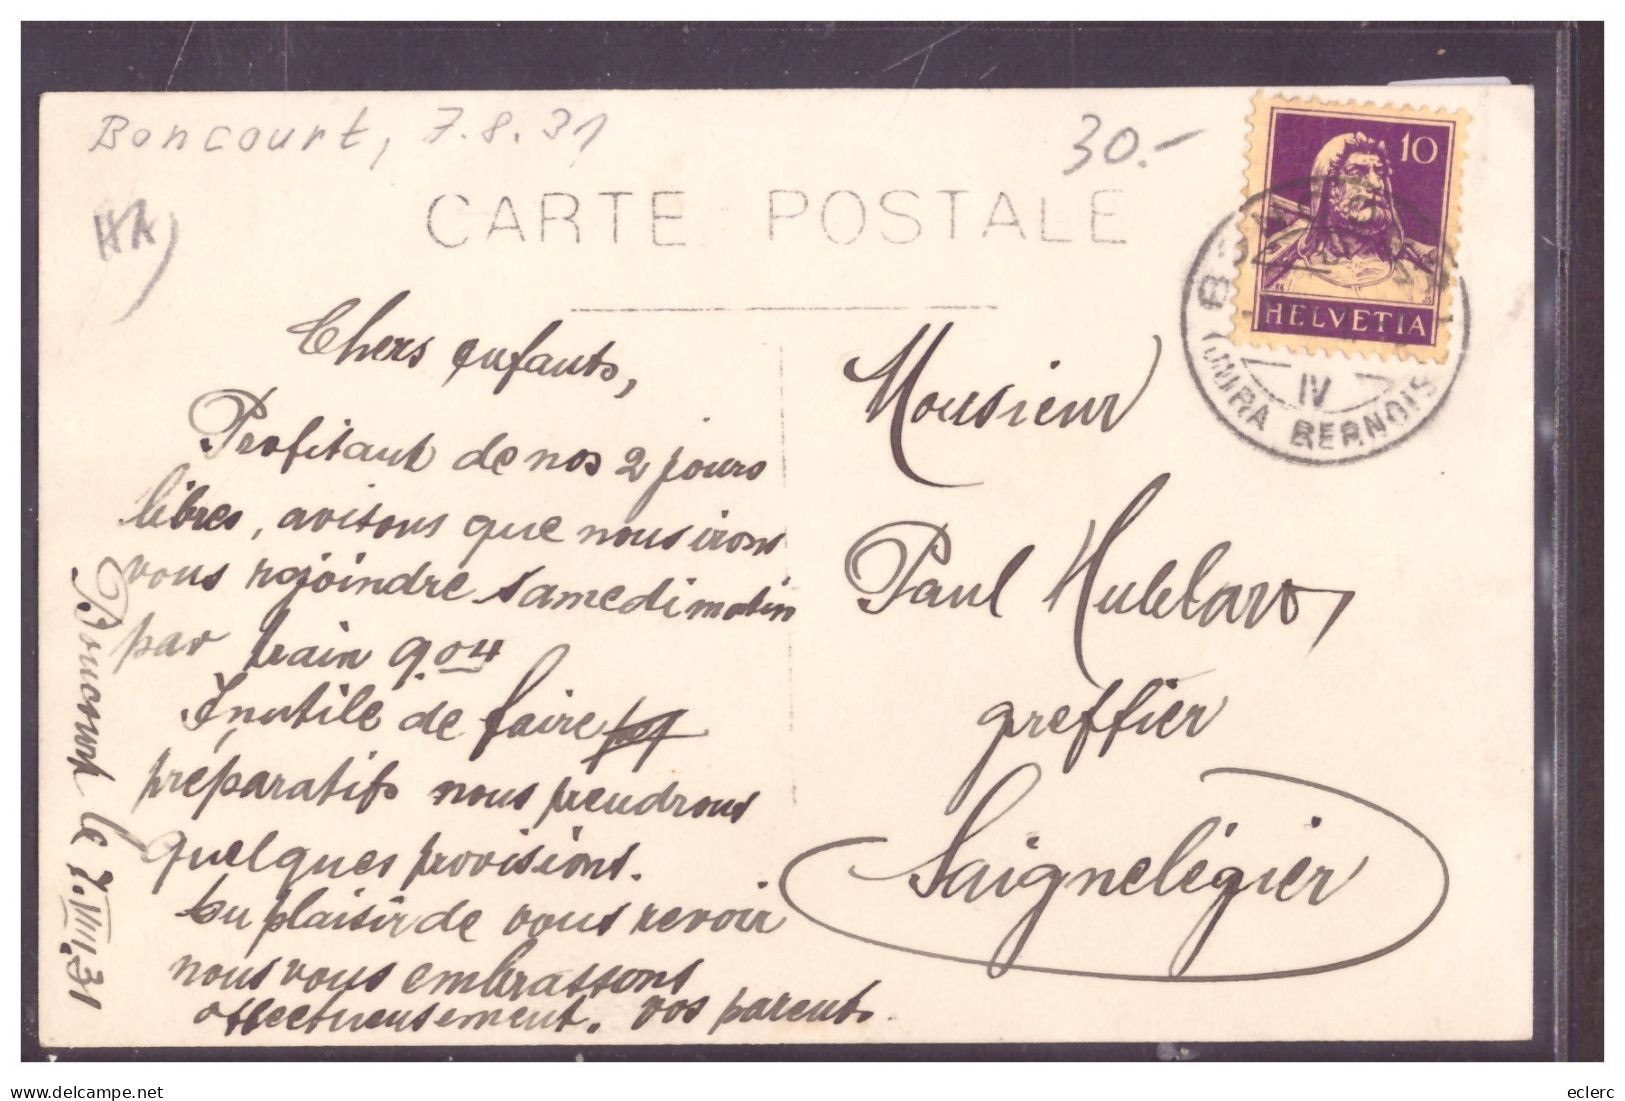 Boncourt, 7.8.31
30.-
CARTE POSTALE
10
HELVETIA
IV
(JURA BERNOIS)
Chers enfants,
Profitant de nos 2 jours
libres, avisons que nous irons
vous rejoindre samedi matin
par train 9.04
Inutile de faire
préparatifs nous prendrons
quelques provisions.
Au plaisir de vous revoir
nous vous embrassons
affectueusement. vos parents.
Boncourt le 7.VIII.31
Monsieur
Paul Hublard,
greffier
Saignelégier
eclerc